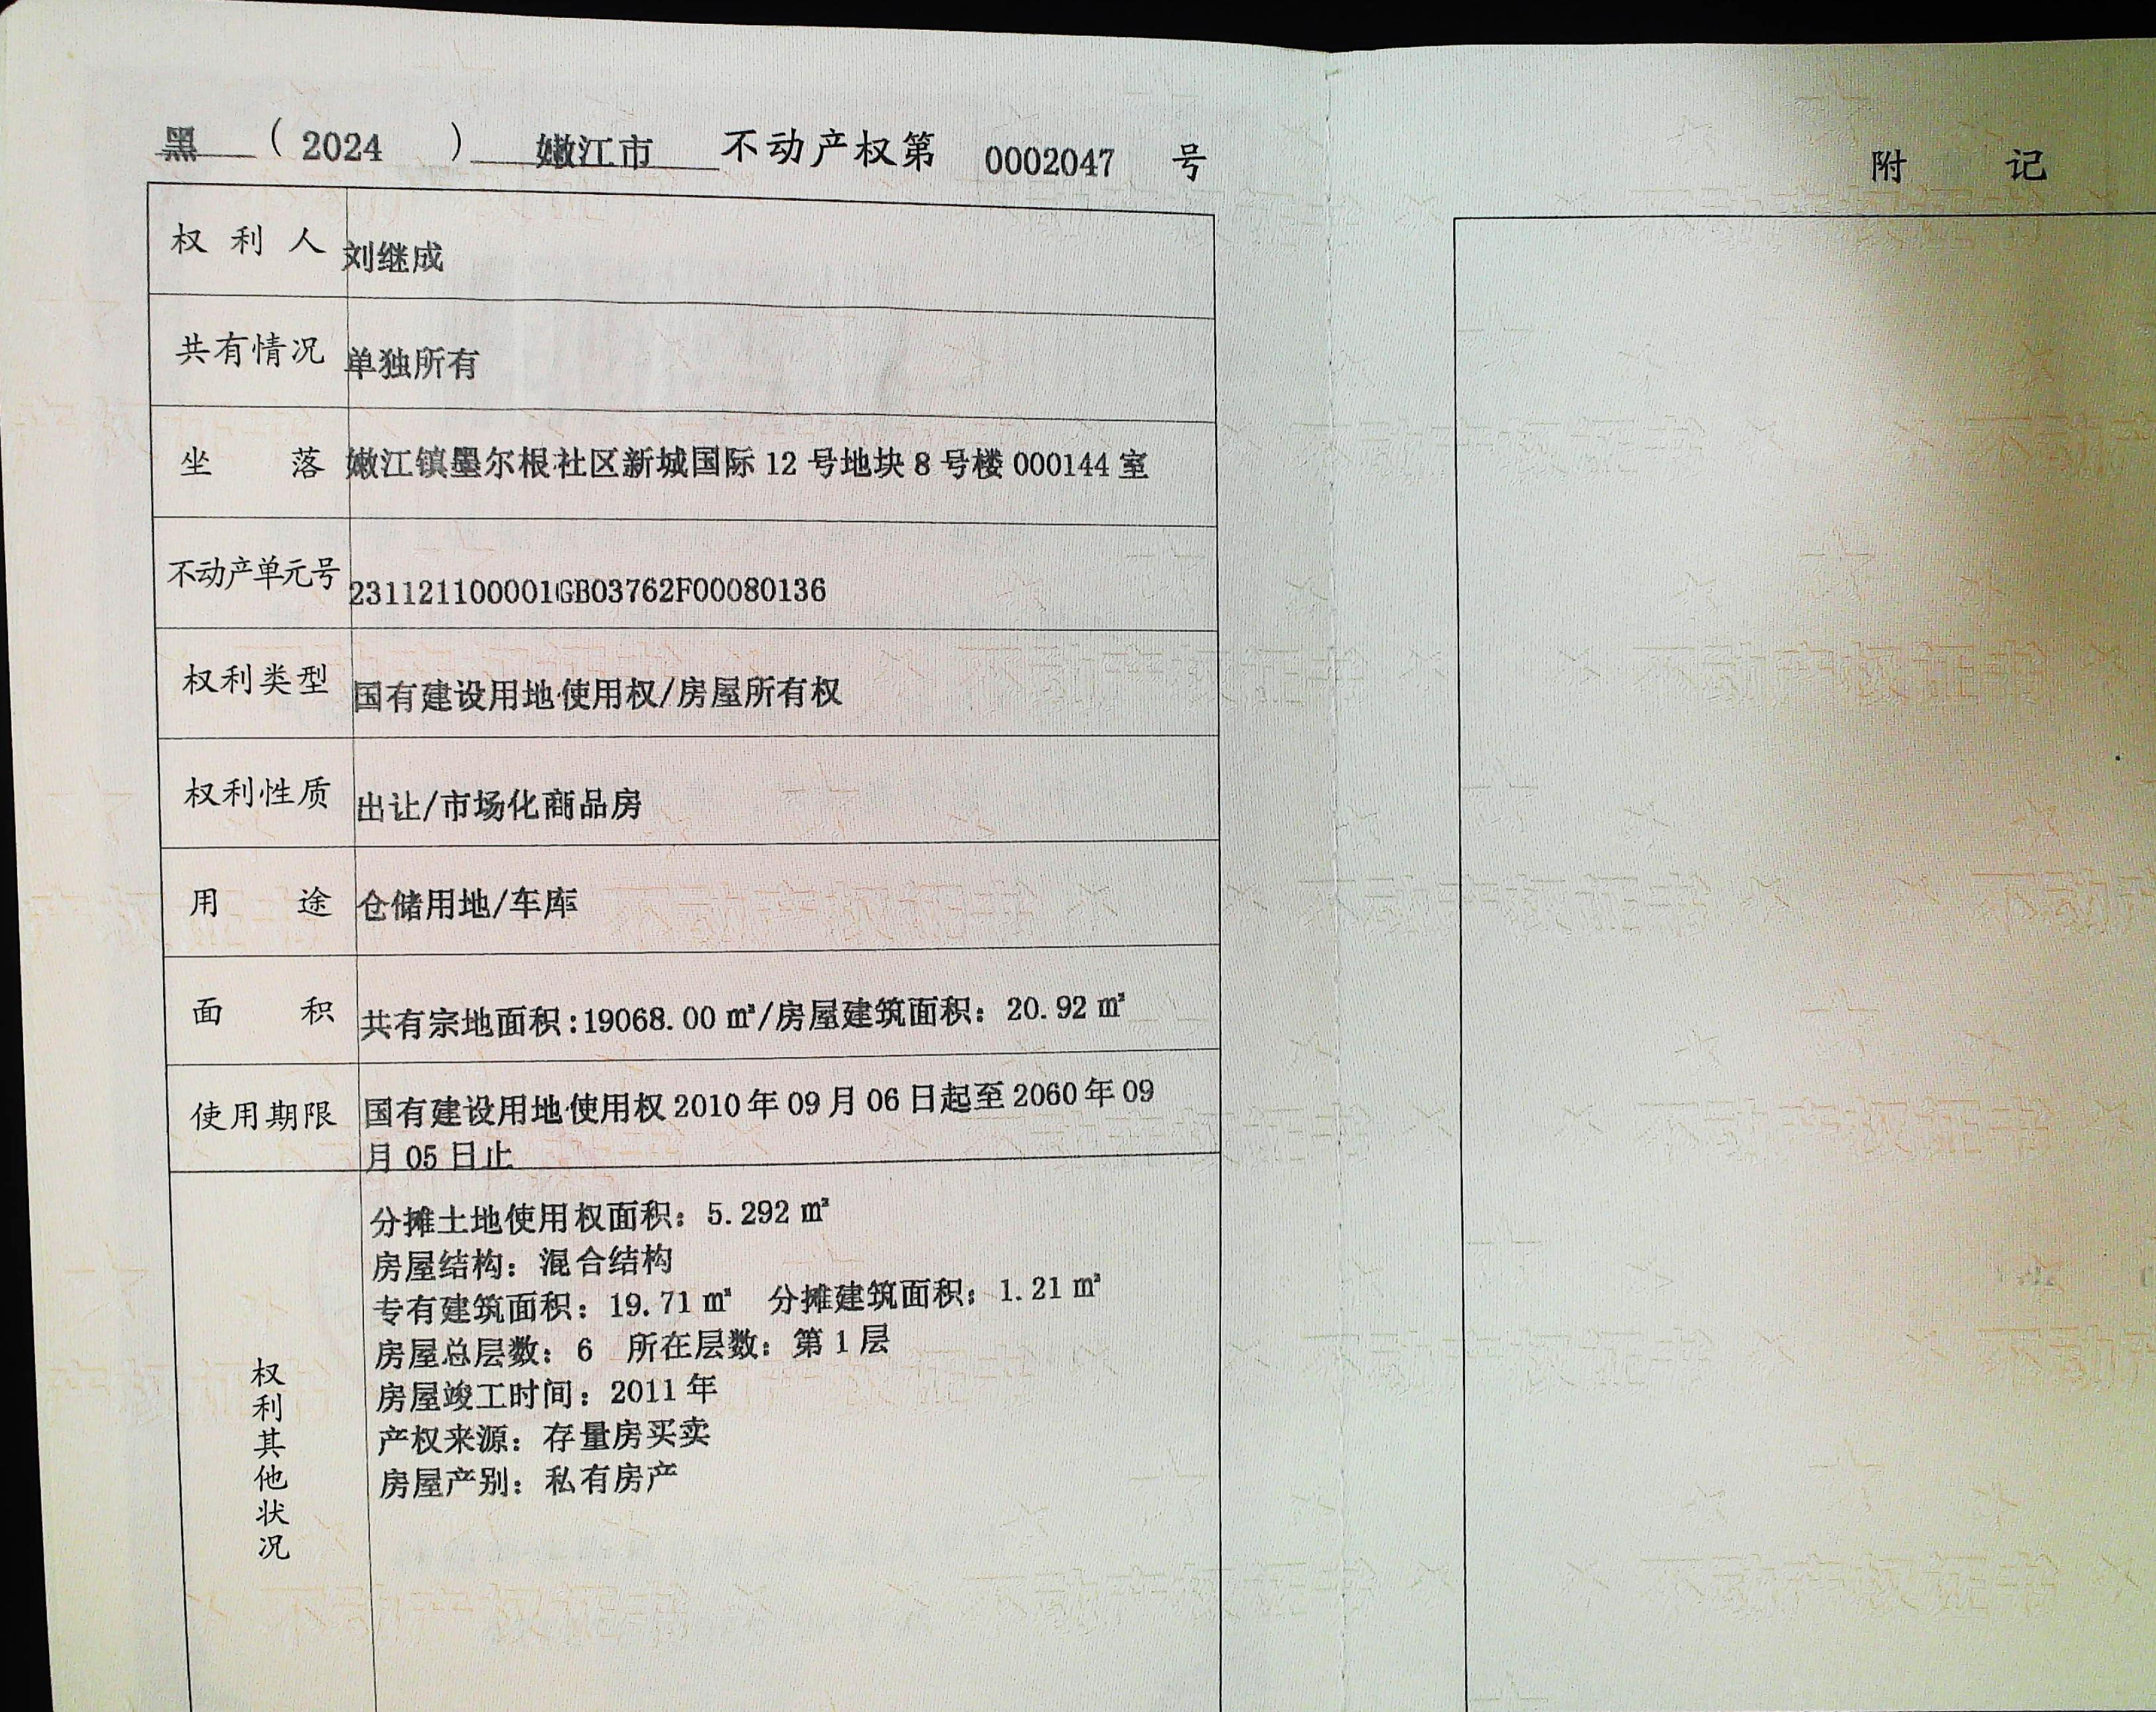 黑（2024）嫩江市 不动产权第 0002047 号
权利人 刘继成
共有情况 单独所有
坐落 嫩江镇墨尔根社区新城国际 12 号地块 8 号楼 000144 室
不动产单元号 231121100001GB03762F00080136
权利类型 国有建设用地使用权/房屋所有权
权利性质 出让/市场化商品房
用途 仓储用地/车库
面积 共有宗地面积:19068.00 ㎡/房屋建筑面积：20.92 ㎡
使用期限 国有建设用地使用权 2010 年 09 月 06 日起至 2060 年 09
月 05 日止
权利其他状况
分摊土地使用权面积：5.292 ㎡
房屋结构：混合结构
专有建筑面积：19.71 ㎡ 分摊建筑面积：1.21 ㎡
房屋总层数：6 所在层数：第 1 层
房屋竣工时间：2011 年
产权来源：存量房买卖
房屋产别：私有房产
附记